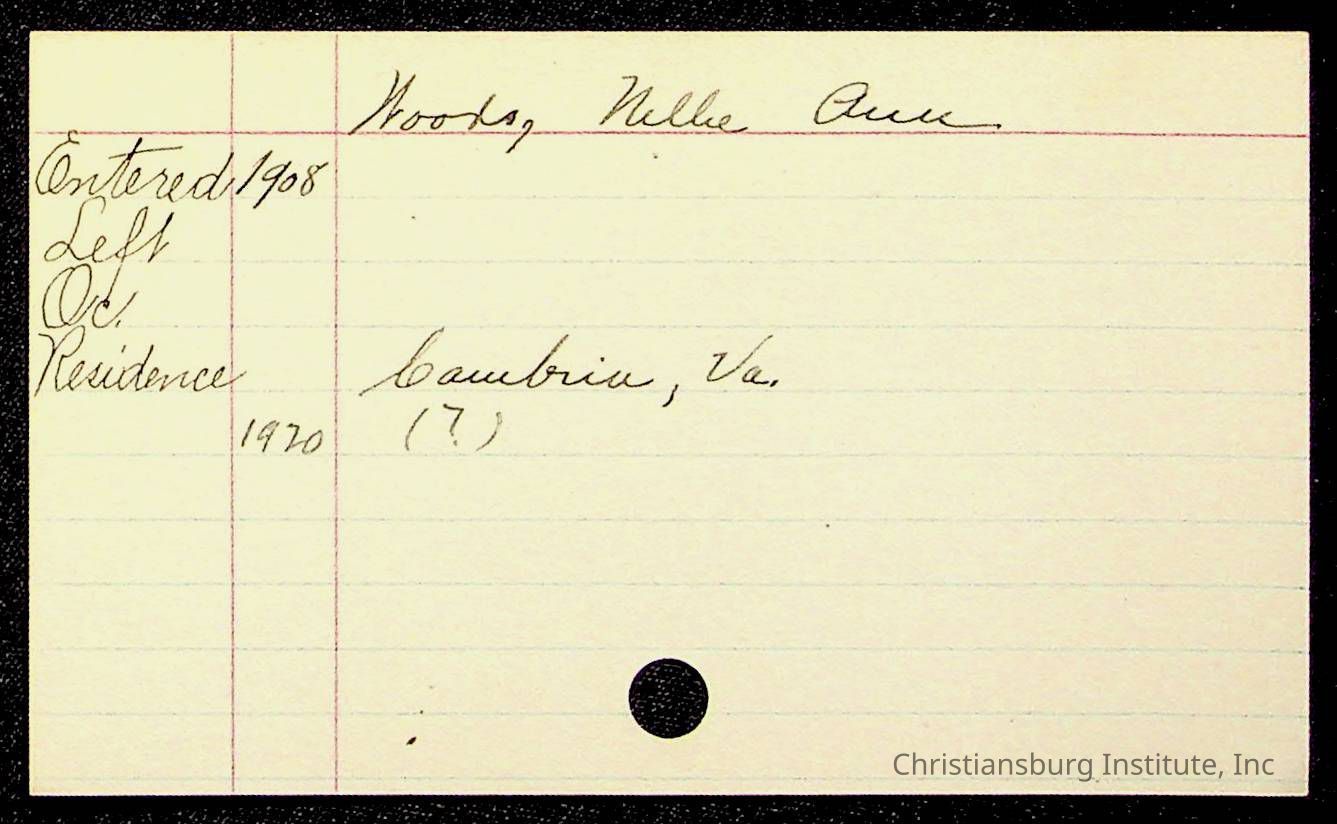 Woods, Nellie Ann
Entered 1908
Left
Oc.
Residence Cambria, Va.
1920 (?)
Christiansburg Institute, Inc